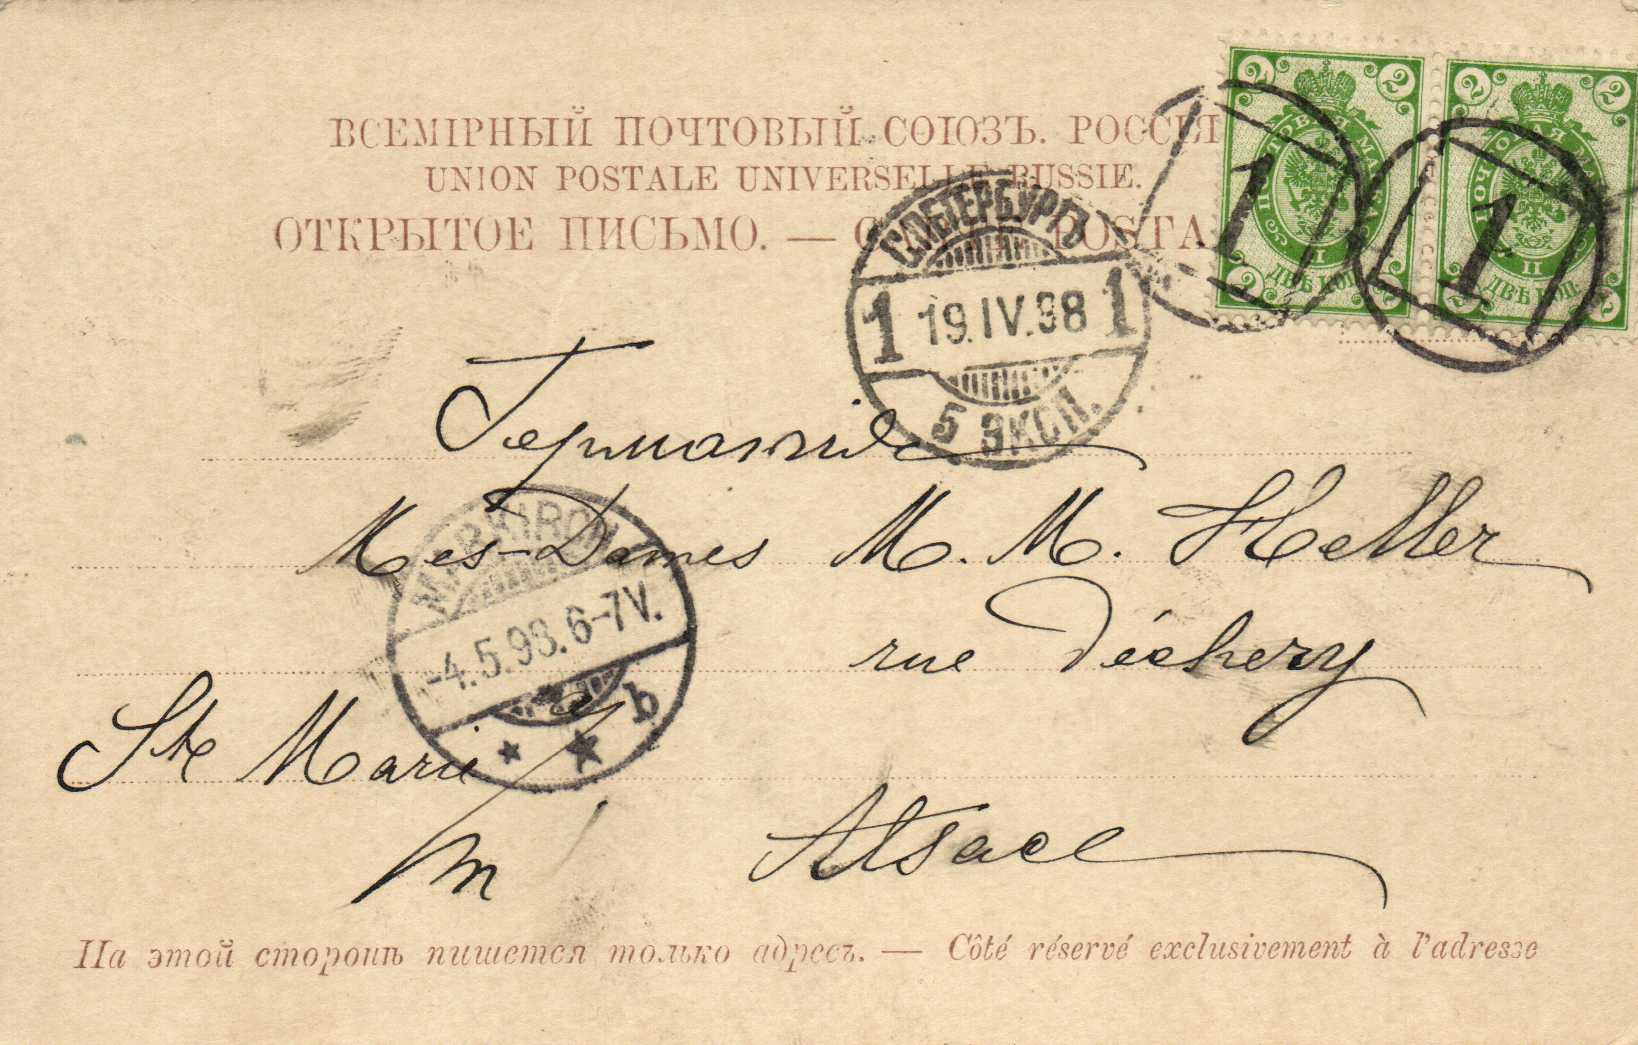 ВСЕМІРНЫЙ ПОЧТОВЫЙ СОЮЗЪ. РОССІЯ
UNION POSTALE UNIVERSELLE RUSSIE.
ОТКРЫТОЕ ПИСЬМО. —
2 2
ПОЧТОВАЯ МАРКА
ДВѢ КОП.
2 2
2 2
ПОЧТОВАЯ МАРКА
ДВѢ КОП.
2 2
1
1
С.ПЕТЕРБУРГЪ
1 19.IV.98 1
5 ЭКСП.
Германія
Mes-Dames M. M. Heller
rue Déchery
MARKIRCH
-4.5.98. 6-7V.
b
Ste Marie
/m
Alsace
На этой сторонѣ пишется только адресъ. — Côté réservé exclusivement à l'adresse